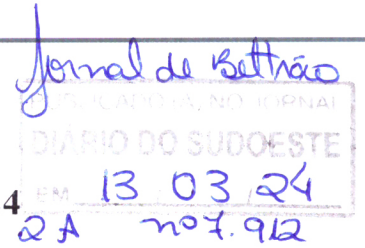 Jornal de Beltrão
PUBLICADO(A) NO JORNAL
DIÁRIO DO SUDOESTE
4 EM 13 03 24
2A nº 7.912